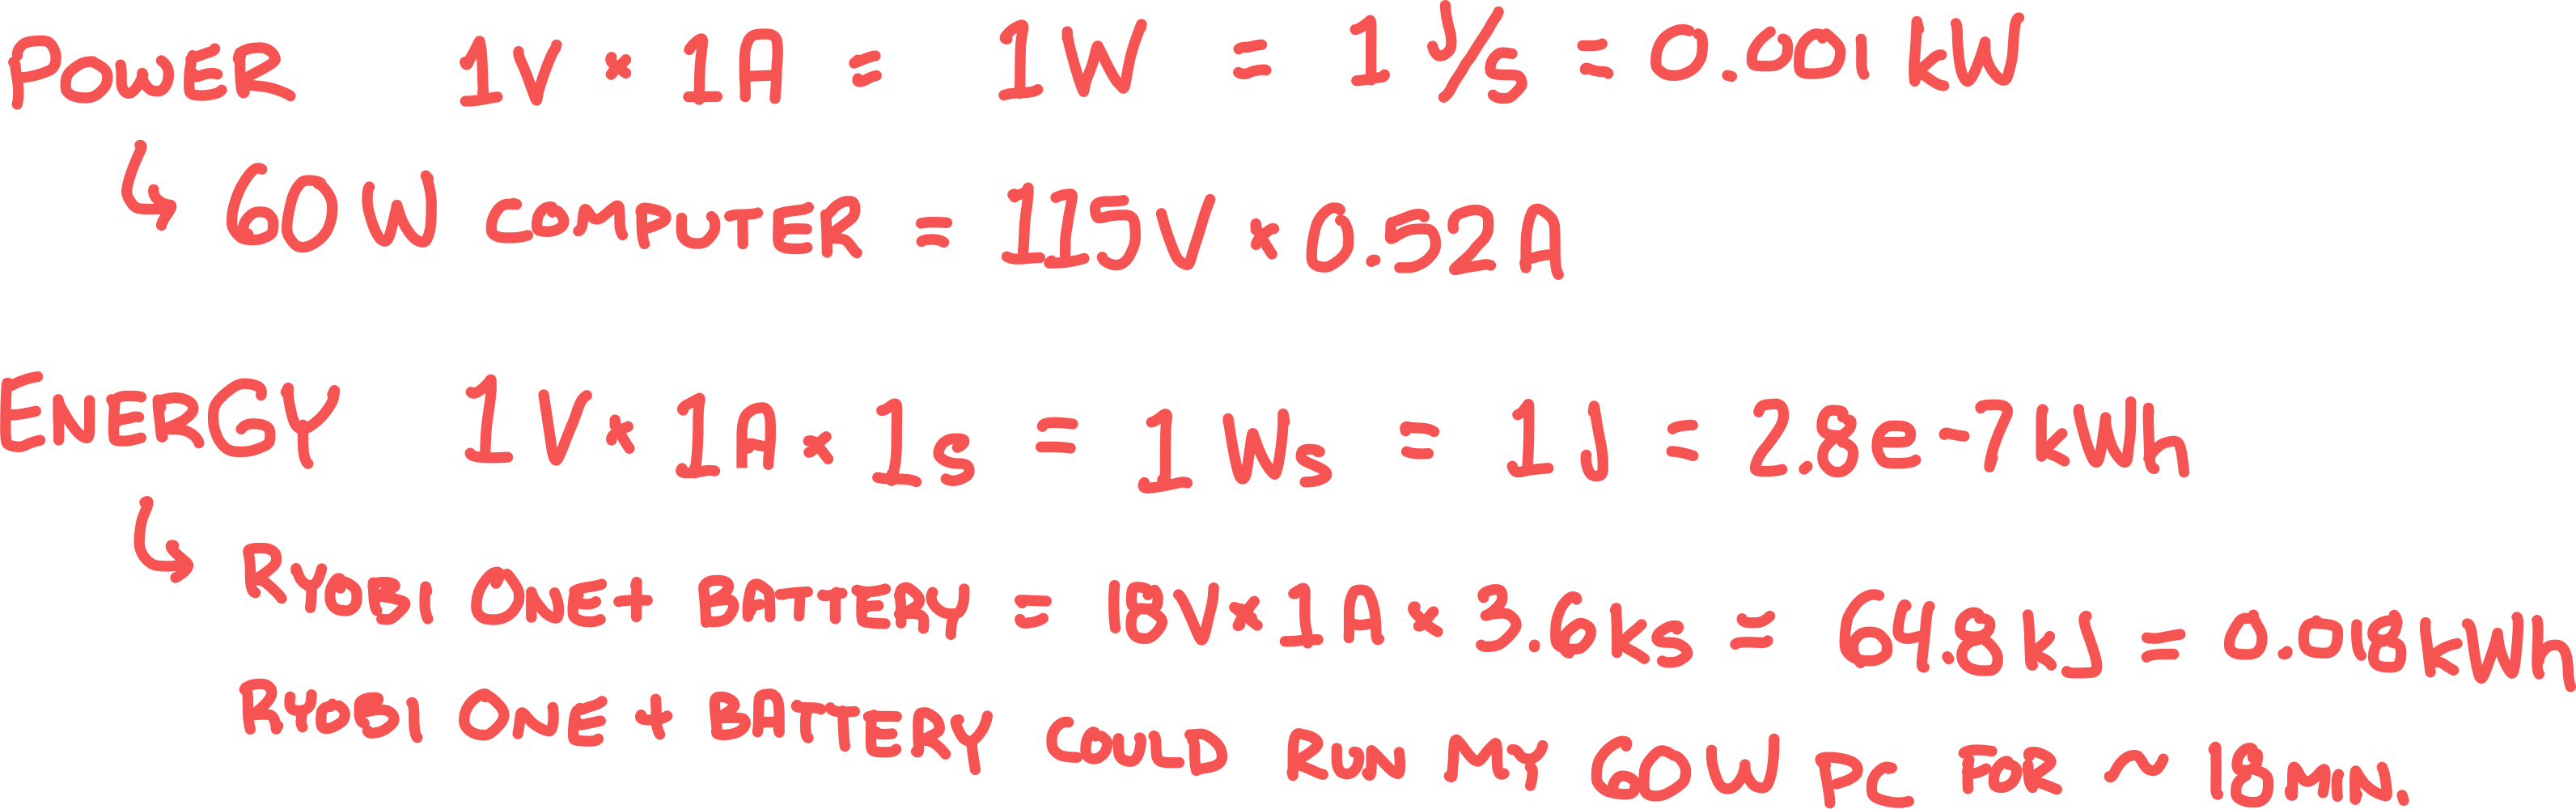 POWER 1V × 1A = 1W = 1 J/s = 0.001 kW
↳ 60W COMPUTER = 115V × 0.52A
ENERGY 1V × 1A × 1s = 1 Ws = 1J = 2.8e-7 kWh
↳ RYOBI ONE+ BATTERY = 18V × 1A × 3.6ks = 64.8kJ = 0.018kWh
RYOBI ONE + BATTERY COULD RUN MY 60W PC FOR ~ 18 MIN.